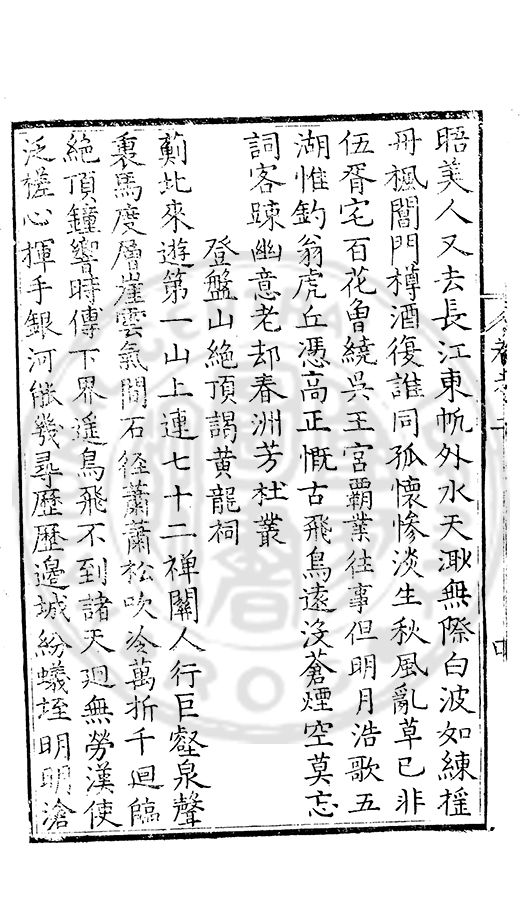 晤美人又去長江東帆外水天渺無際白波如練搖
丹楓閶門樽酒復誰同孤懷慘淡生秋風亂草已非
伍胥宅百花曾繞吳王宮霸業往事但明月浩歌五
湖惟釣翁虎丘憑高正慨古飛鳥遠沒蒼煙空莫忘
詞客踈幽意老却春洲芳杜叢
登盤山絕頂謁黃龍祠
薊北來遊第一山上連七十二禅關人行巨壑泉聲
裏馬度層崖雲氣間石徑蕭蕭松吹冷萬折千迴臨
絕頂鐘響時傳下界遥鳥飛不到諸天迥無勞漢使
泛槎心揮手銀河能幾尋歷歷邊城紛蟻垤明明滄